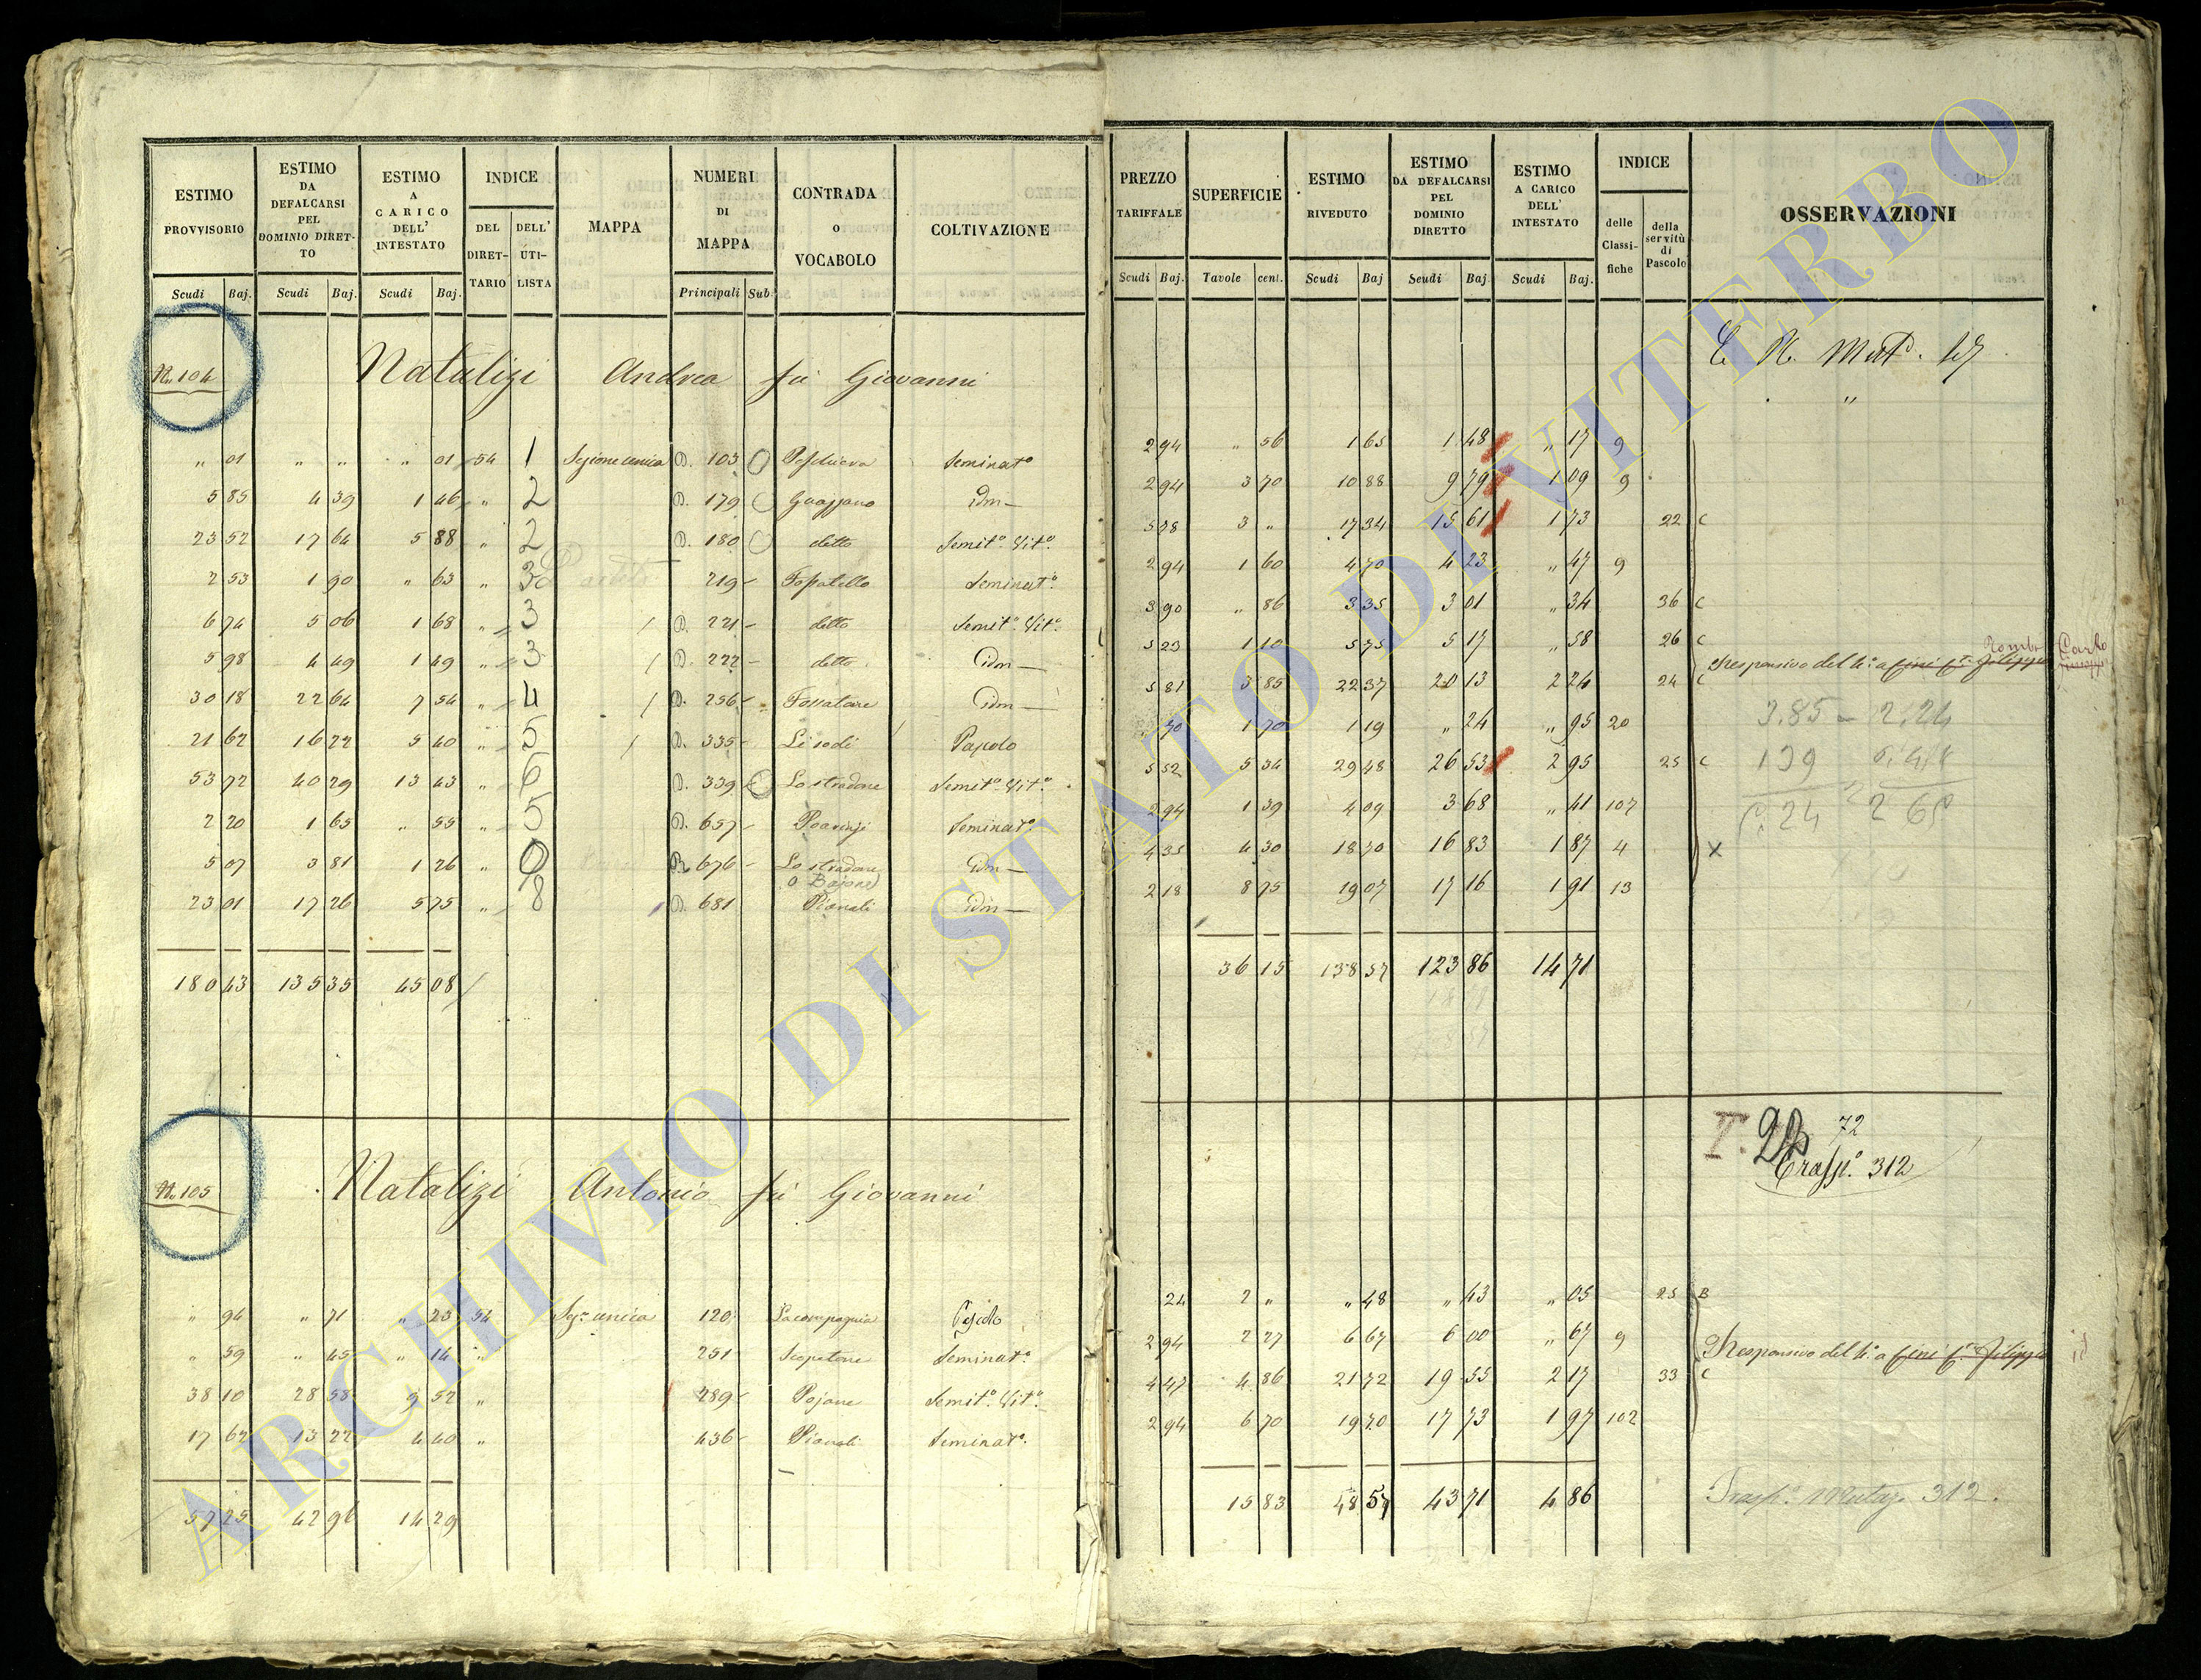 ESTIMO PROVVISORIO | ESTIMO DA DEFALCARSI PEL DOMINIO DIRETTO | ESTIMO A CARICO DELL' INTESTATO | INDICE DEL DIRETTARIO | DELL' UTILISTA | MAPPA | NUMERI DI MAPPA | CONTRADA O VOCABOLO | COLTIVAZIONE
Scudi | Baj. | Scudi | Baj. | Scudi | Baj. | Principali | Sub.
N. 104 Natalizi Andrea fu Giovanni
" 01 | " " | " 01 | 54 | 1 | Sezione unica | D. 103 | Peschiera | Seminato
5 85 | 4 39 | 1 46 | " | 2 | D. 179 | Guazzano | Idm
23 52 | 17 64 | 5 88 | " | 2 | D. 180 | detto | Semito. Vito.
2 53 | 1 90 | " 63 | " | 3 | 219 | Fossatello | Seminato.
6 74 | 5 06 | 1 68 | " | 3 | D. 221 | detto | Semito. Vito.
5 98 | 4 49 | 1 49 | " | 3 | D. 222 | detto | Idm
30 18 | 22 64 | 7 54 | " | 4 | D. 256 | Fossatare | Idm
21 62 | 16 22 | 5 40 | " | 5 | D. 335 | Li sodi | Pascolo
53 72 | 40 29 | 13 43 | " | 6 | D. 339 | Lo stradone | Semito. Vito.
2 20 | 1 65 | " 55 | " | 5 | D. 657 | Seminato.
5 07 | 3 81 | 1 26 | " | 676 | Lo stradone | Idm
o Bajone
23 01 | 17 26 | 5 75 | " | 8 | D. 681 | Pianali | Idm
180 43 | 135 35 | 45 08
N. 105 Natalizi Antonio fu Giovanni
" 94 | " 71 | " 23 | 54 | Sezne unica | 120 | La compagnia | Pascolo
" 59 | " 45 | " 14 | " | 251 | Scopetone | Seminato.
38 10 | 28 58 | 9 52 | " | 289 | Pojane | Semito. Vito.
17 62 | 13 22 | 4 40 | " | 436 | Pianali | Seminato.
57 25 | 42 96 | 14 29
PREZZO TARIFFALE | SUPERFICIE | ESTIMO RIVEDUTO | ESTIMO DA DEFALCARSI PEL DOMINIO DIRETTO | ESTIMO A CARICO DELL' INTESTATO | INDICE delle Classifiche | della servitù di Pascolo | OSSERVAZIONI
Scudi | Baj. | Tavole | cent. | Scudi | Baj | Scudi | Baj. | Scudi | Baj.
2 94 | " 56 | 1 65 | 1 48 | " 17 | 9
2 94 | 3 70 | 10 88 | 9 79 | 1 09 | 9
5 78 | 3 " | 17 34 | 15 61 | 1 73 | 22 | C
2 94 | 1 60 | 4 70 | 4 23 | " 47 | 9
3 90 | " 86 | 3 35 | 3 01 | " 34 | 36 | C
5 23 | 1 10 | 5 75 | 5 17 | " 58 | 26 | C
Responsivo del 4o. a
5 81 | 3 85 | 22 37 | 20 13 | 2 24 | 24 | C
" 70 | 1 70 | 1 19 | " 24 | " 95 | 20
5 52 | 5 34 | 29 48 | 26 53 | 2 95 | 25 | C
2 94 | 1 39 | 4 09 | 3 68 | " 41 | 107
4 35 | 4 30 | 18 70 | 16 83 | 1 87 | 4 | X
2 18 | 8 75 | 19 07 | 17 16 | 1 91 | 13
3.85 - 2.24
36 15 | 138 57 | 123 86 | 14 71
72
Trasp.o 312
24 | 2 " | " 48 | " 43 | " 05 | 25 | B
2 94 | 2 27 | 6 67 | 6 00 | " 67 | 9
Responsivo del 4o. a
4 47 | 4 86 | 21 72 | 19 55 | 2 17 | 33 | C
2 94 | 6 70 | 19 70 | 17 73 | 1 97 | 102
15 83 | 48 57 | 43 71 | 4 86
312.
ARCHIVIO DI STATO DI VITERBO